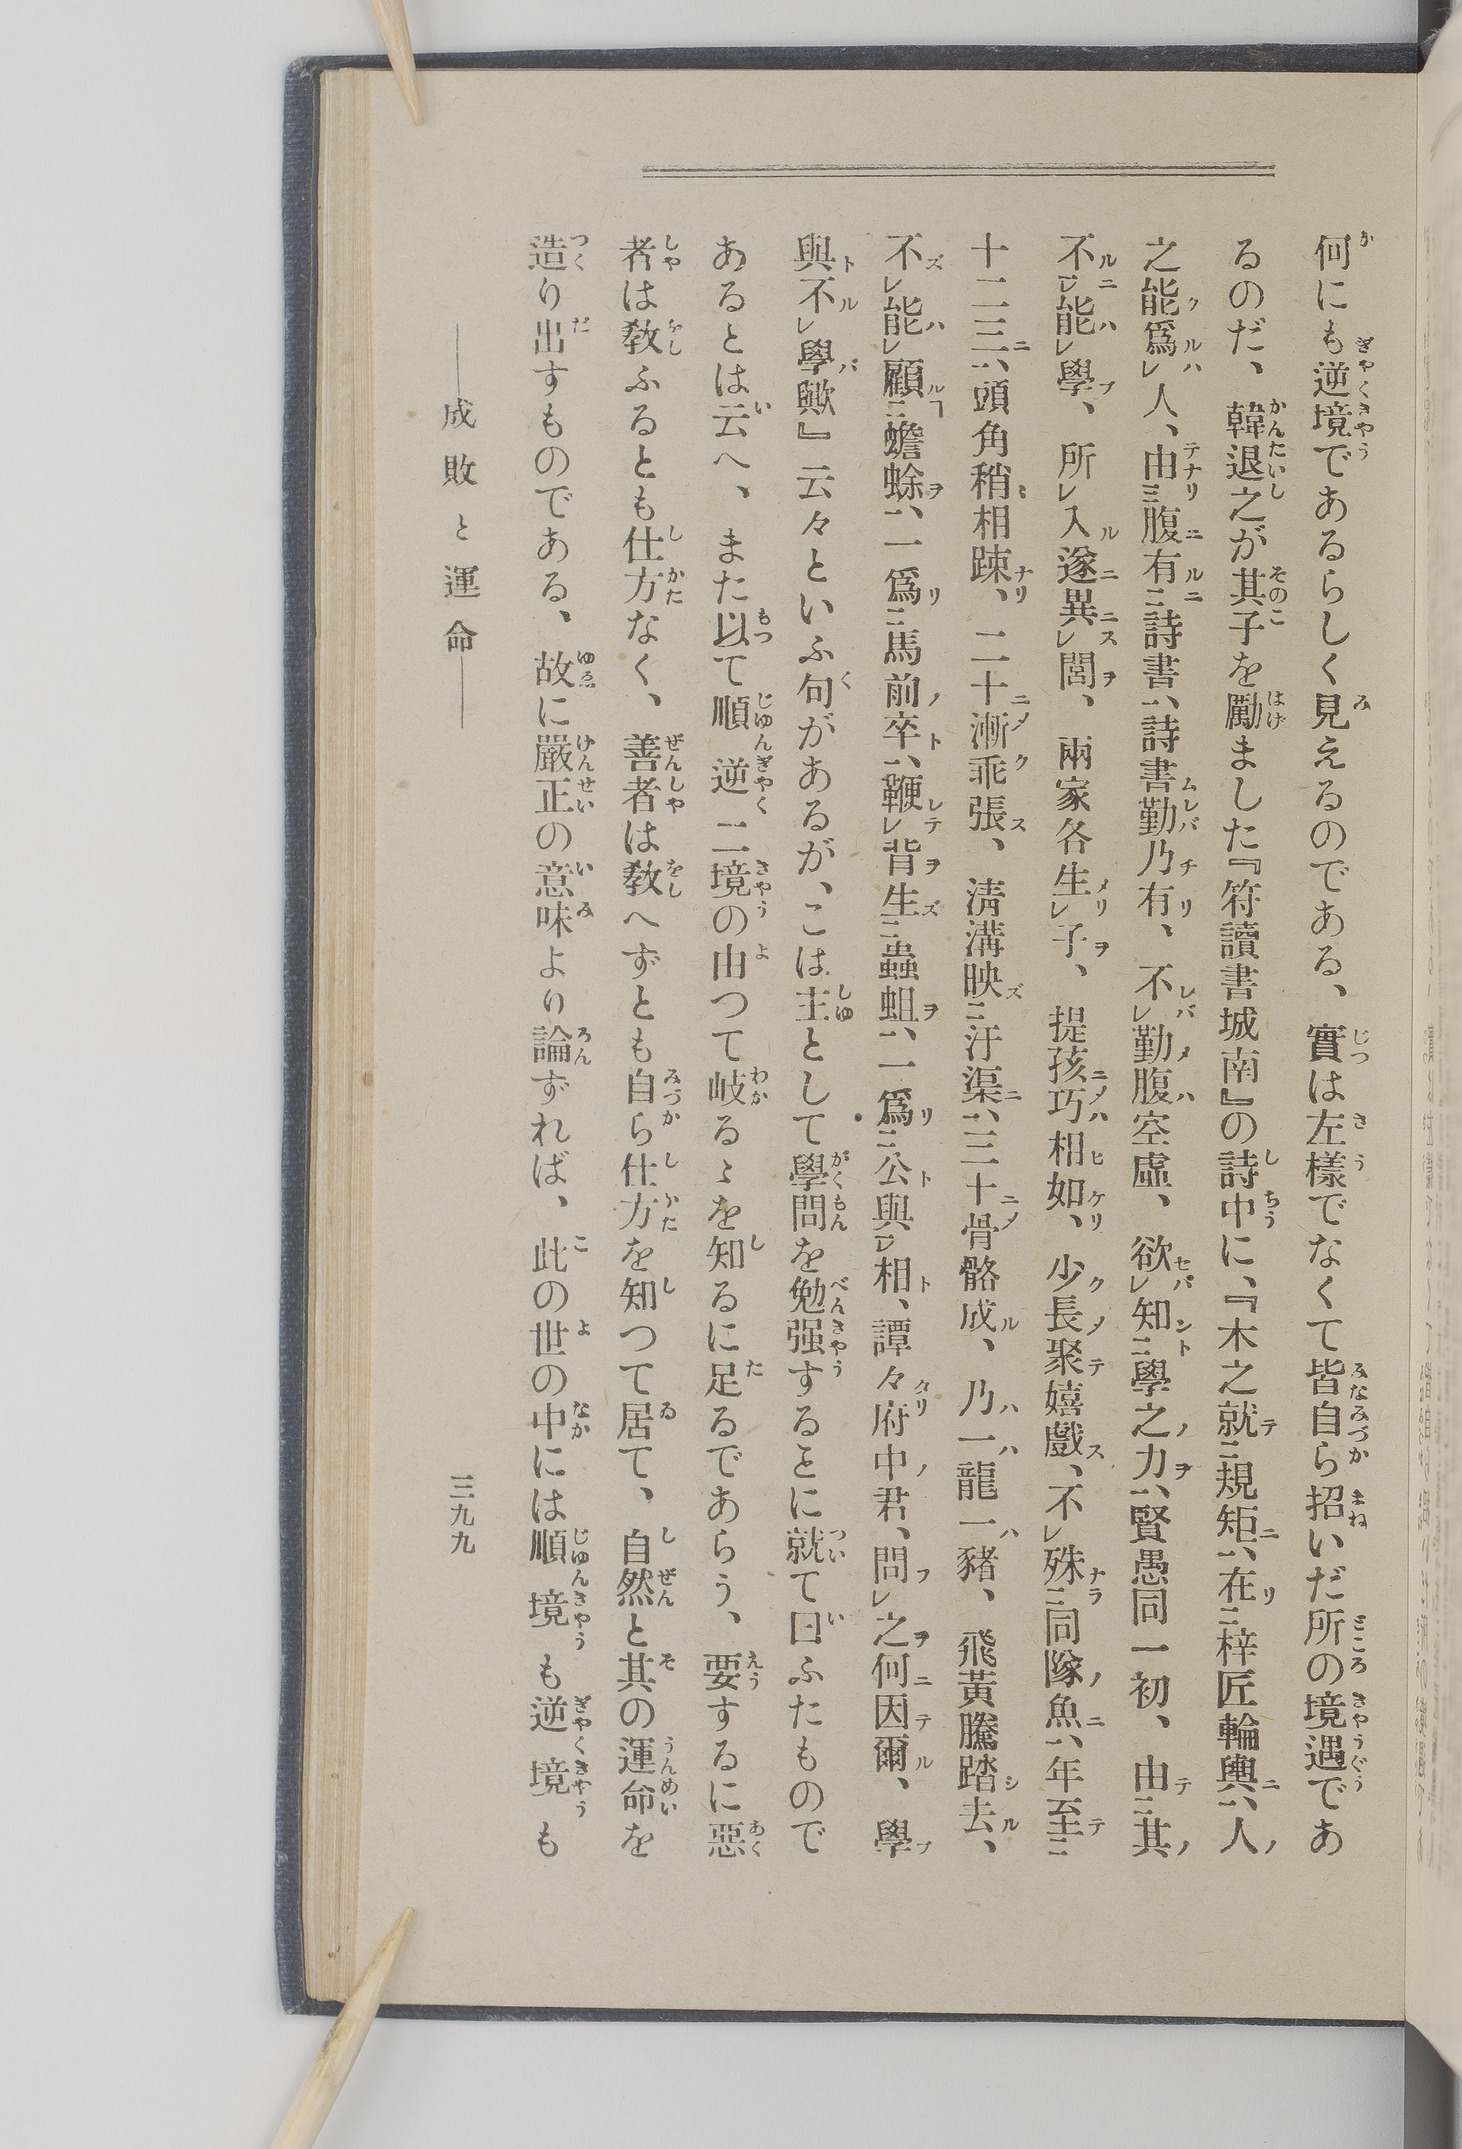 何にも逆境であるらしく見えるのである、實は左樣でなくて皆自ら招いだ所の境遇であ
るのだ、韓退之が其子を勵ました『符讀書城南』の詩中に、『木之就規矩、在梓匠輪輿、人
之能爲人、由腹有詩書、詩書勤乃有、不勤腹空虛、欲知學之力、賢愚同一初、由其
不能學、所入遂異閭、兩家各生子、提孩巧相如、少長聚嬉戲、不殊同隊魚、年至
十二三、頭角稍相踈、二十漸乖張、淸溝映汙渠、三十骨骼成、乃一龍一豬、飛黃騰踏去、
不能顧蟾蜍、一爲馬前卒、鞭背生蟲蛆、一爲公與相、譚々府中君、問之何因爾、學
與不學歟』云々といふ句があるが、こは主として學問を勉强するとに就て曰ふたもので
あるとは云へ、また以て順逆二境の由つて岐るゝを知るに足るであらう、要するに惡
者は敎ふるとも仕方なく、善者は敎へずとも自ら仕方を知つて居て、自然と其の運命を
造り出すものである、故に嚴正の意味より論ずれば、此の世の中には順境も逆境も
――成敗と運命――
三九九